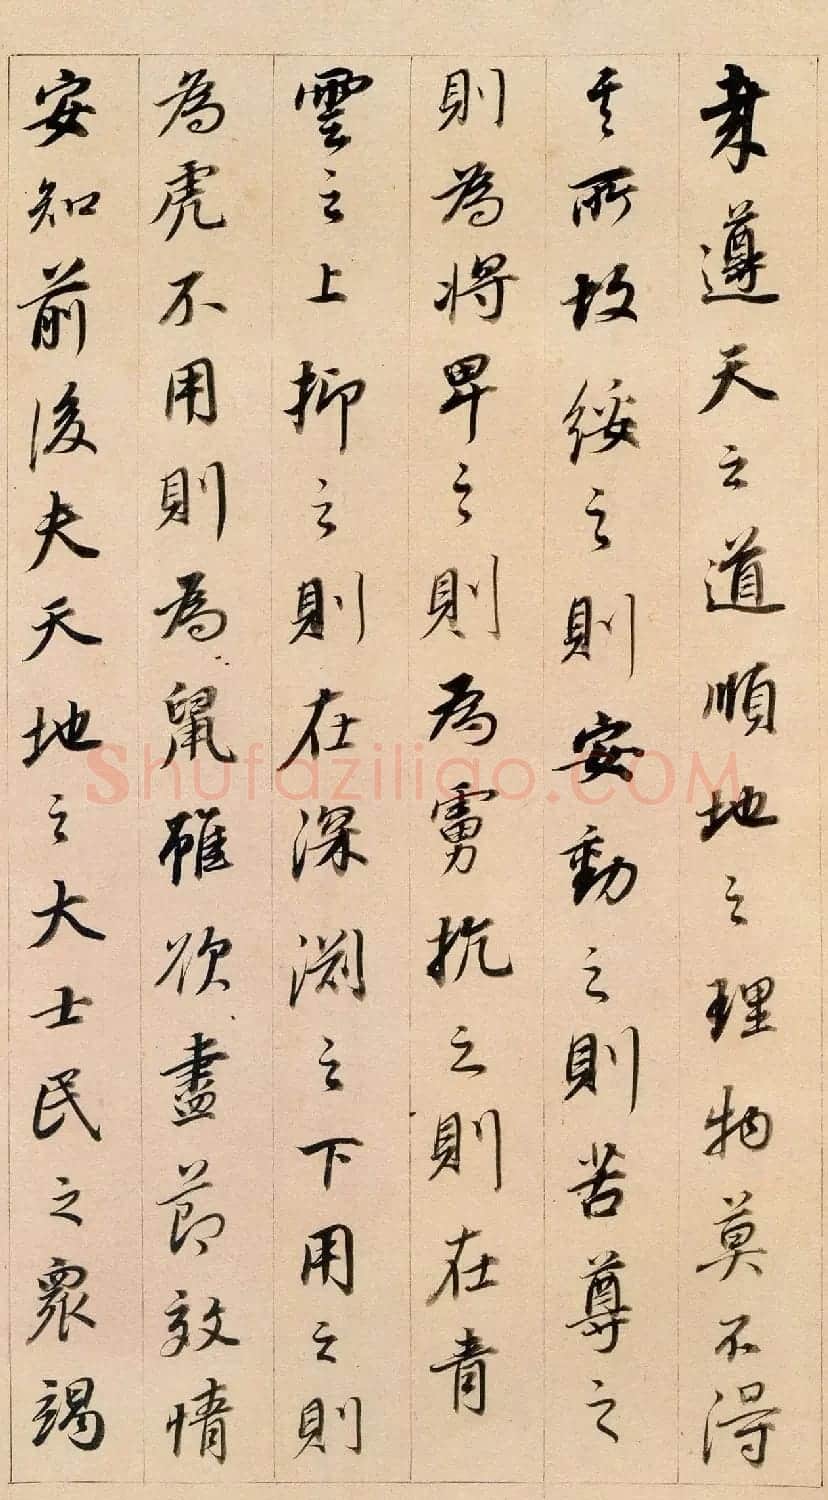 遵天之道順地之理物莫不得
其所故綏之則安動之則苦尊之
則為將卑之則為虜抗之則在青
雲之上抑之則在深淵之下用之則
為虎不用則為鼠雖欲盡節效情
安知前後夫天地之大士民之衆竭
Shufaziliao.COM